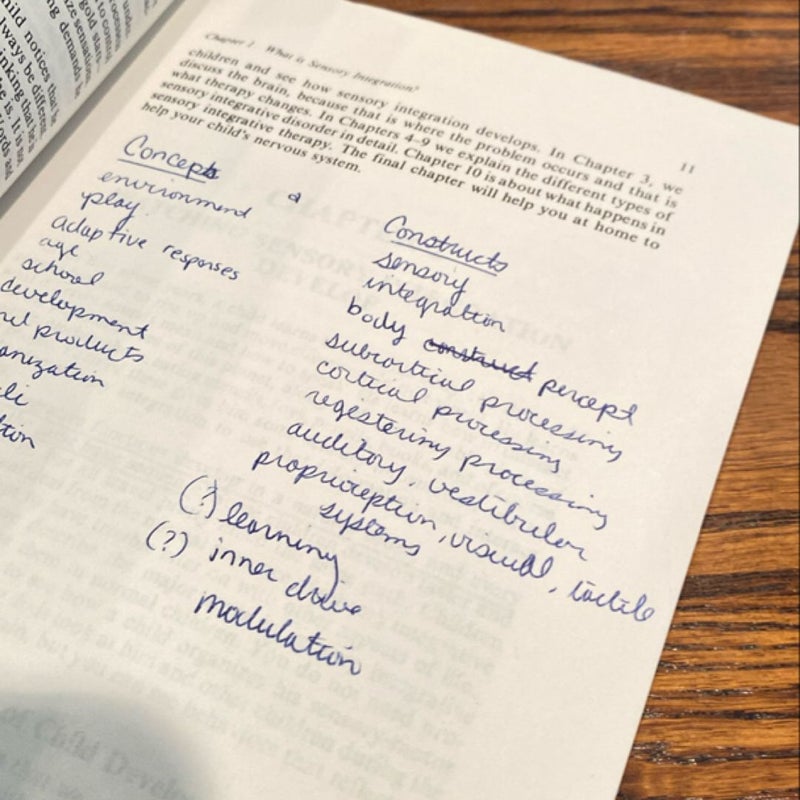 hild notices that he
lways be different
inking that he is
e is. It is not
words and
Chapter 1 What is Sensory Integration?
11
children and see how sensory integration develops. In Chapter 3, we
discuss the brain, because that is where the problem occurs and that is
what therapy changes. In Chapters 4-9 we explain the different types of
sensory integrative disorder in detail. Chapter 10 is about what happens in
sensory integrative therapy. The final chapter will help you at home to
help your child's nervous system.
Concepts
environment
play
adaptive responses
age
school
development
products
anization
li
tion
&
Constructs
sensory
integration
body construct percept
subcortical processing
cortical processing
registering processing
auditory, vestibular
proprioception, visual, tactile
systems
(?) learning
(?) inner drive
modulation